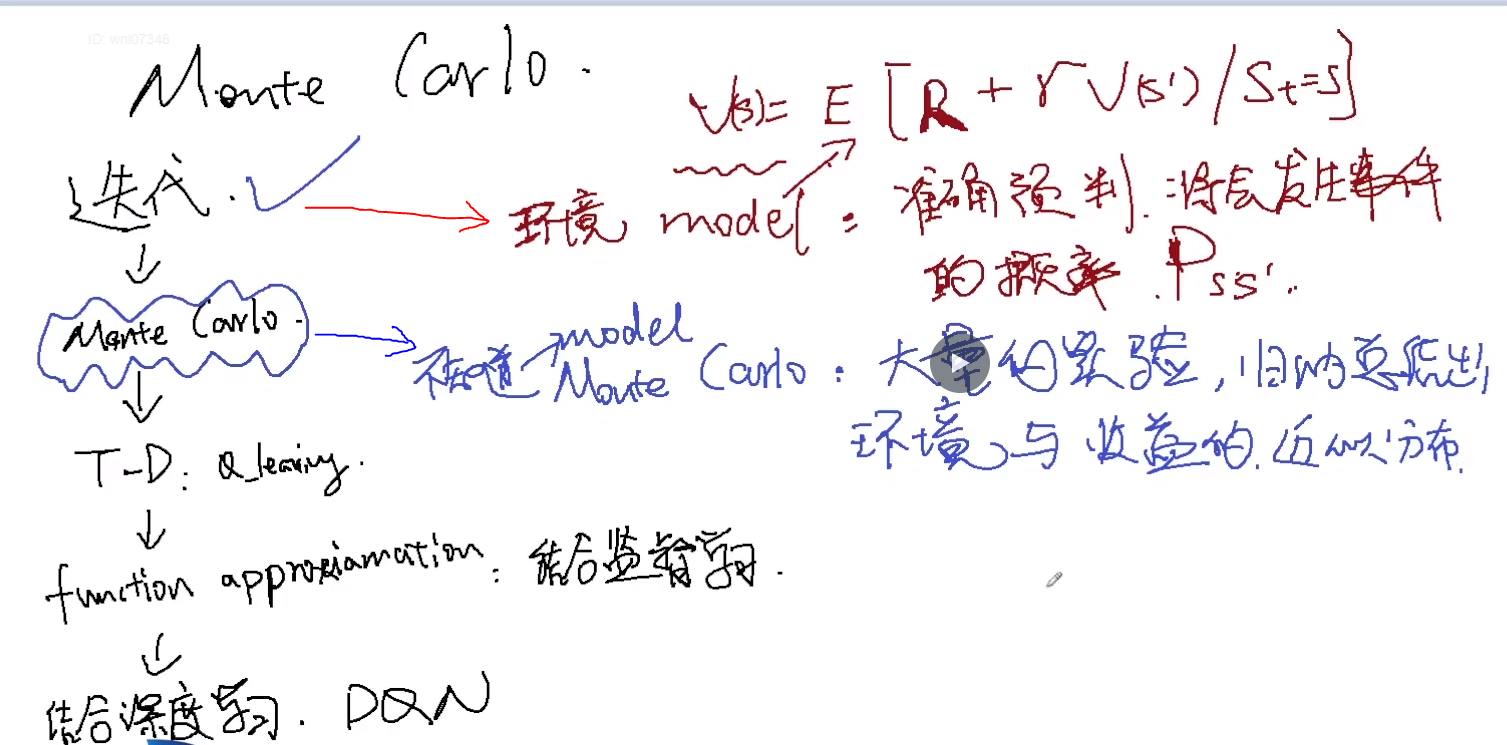 ID: wnl07346
Monte Carlo.
V(s)= E [R + γV(s')/St=s]
迭代.
环境 model: 准确预判.将会发生事件
的概率.Pss'.
Monte Carlo.
不知道 model
Monte Carlo: 大量的实验,归纳总结出
环境与收益的.近似分布.
T-D: Q_learing.
function approxiamation: 结合监督学习.
结合深度学习. DQN